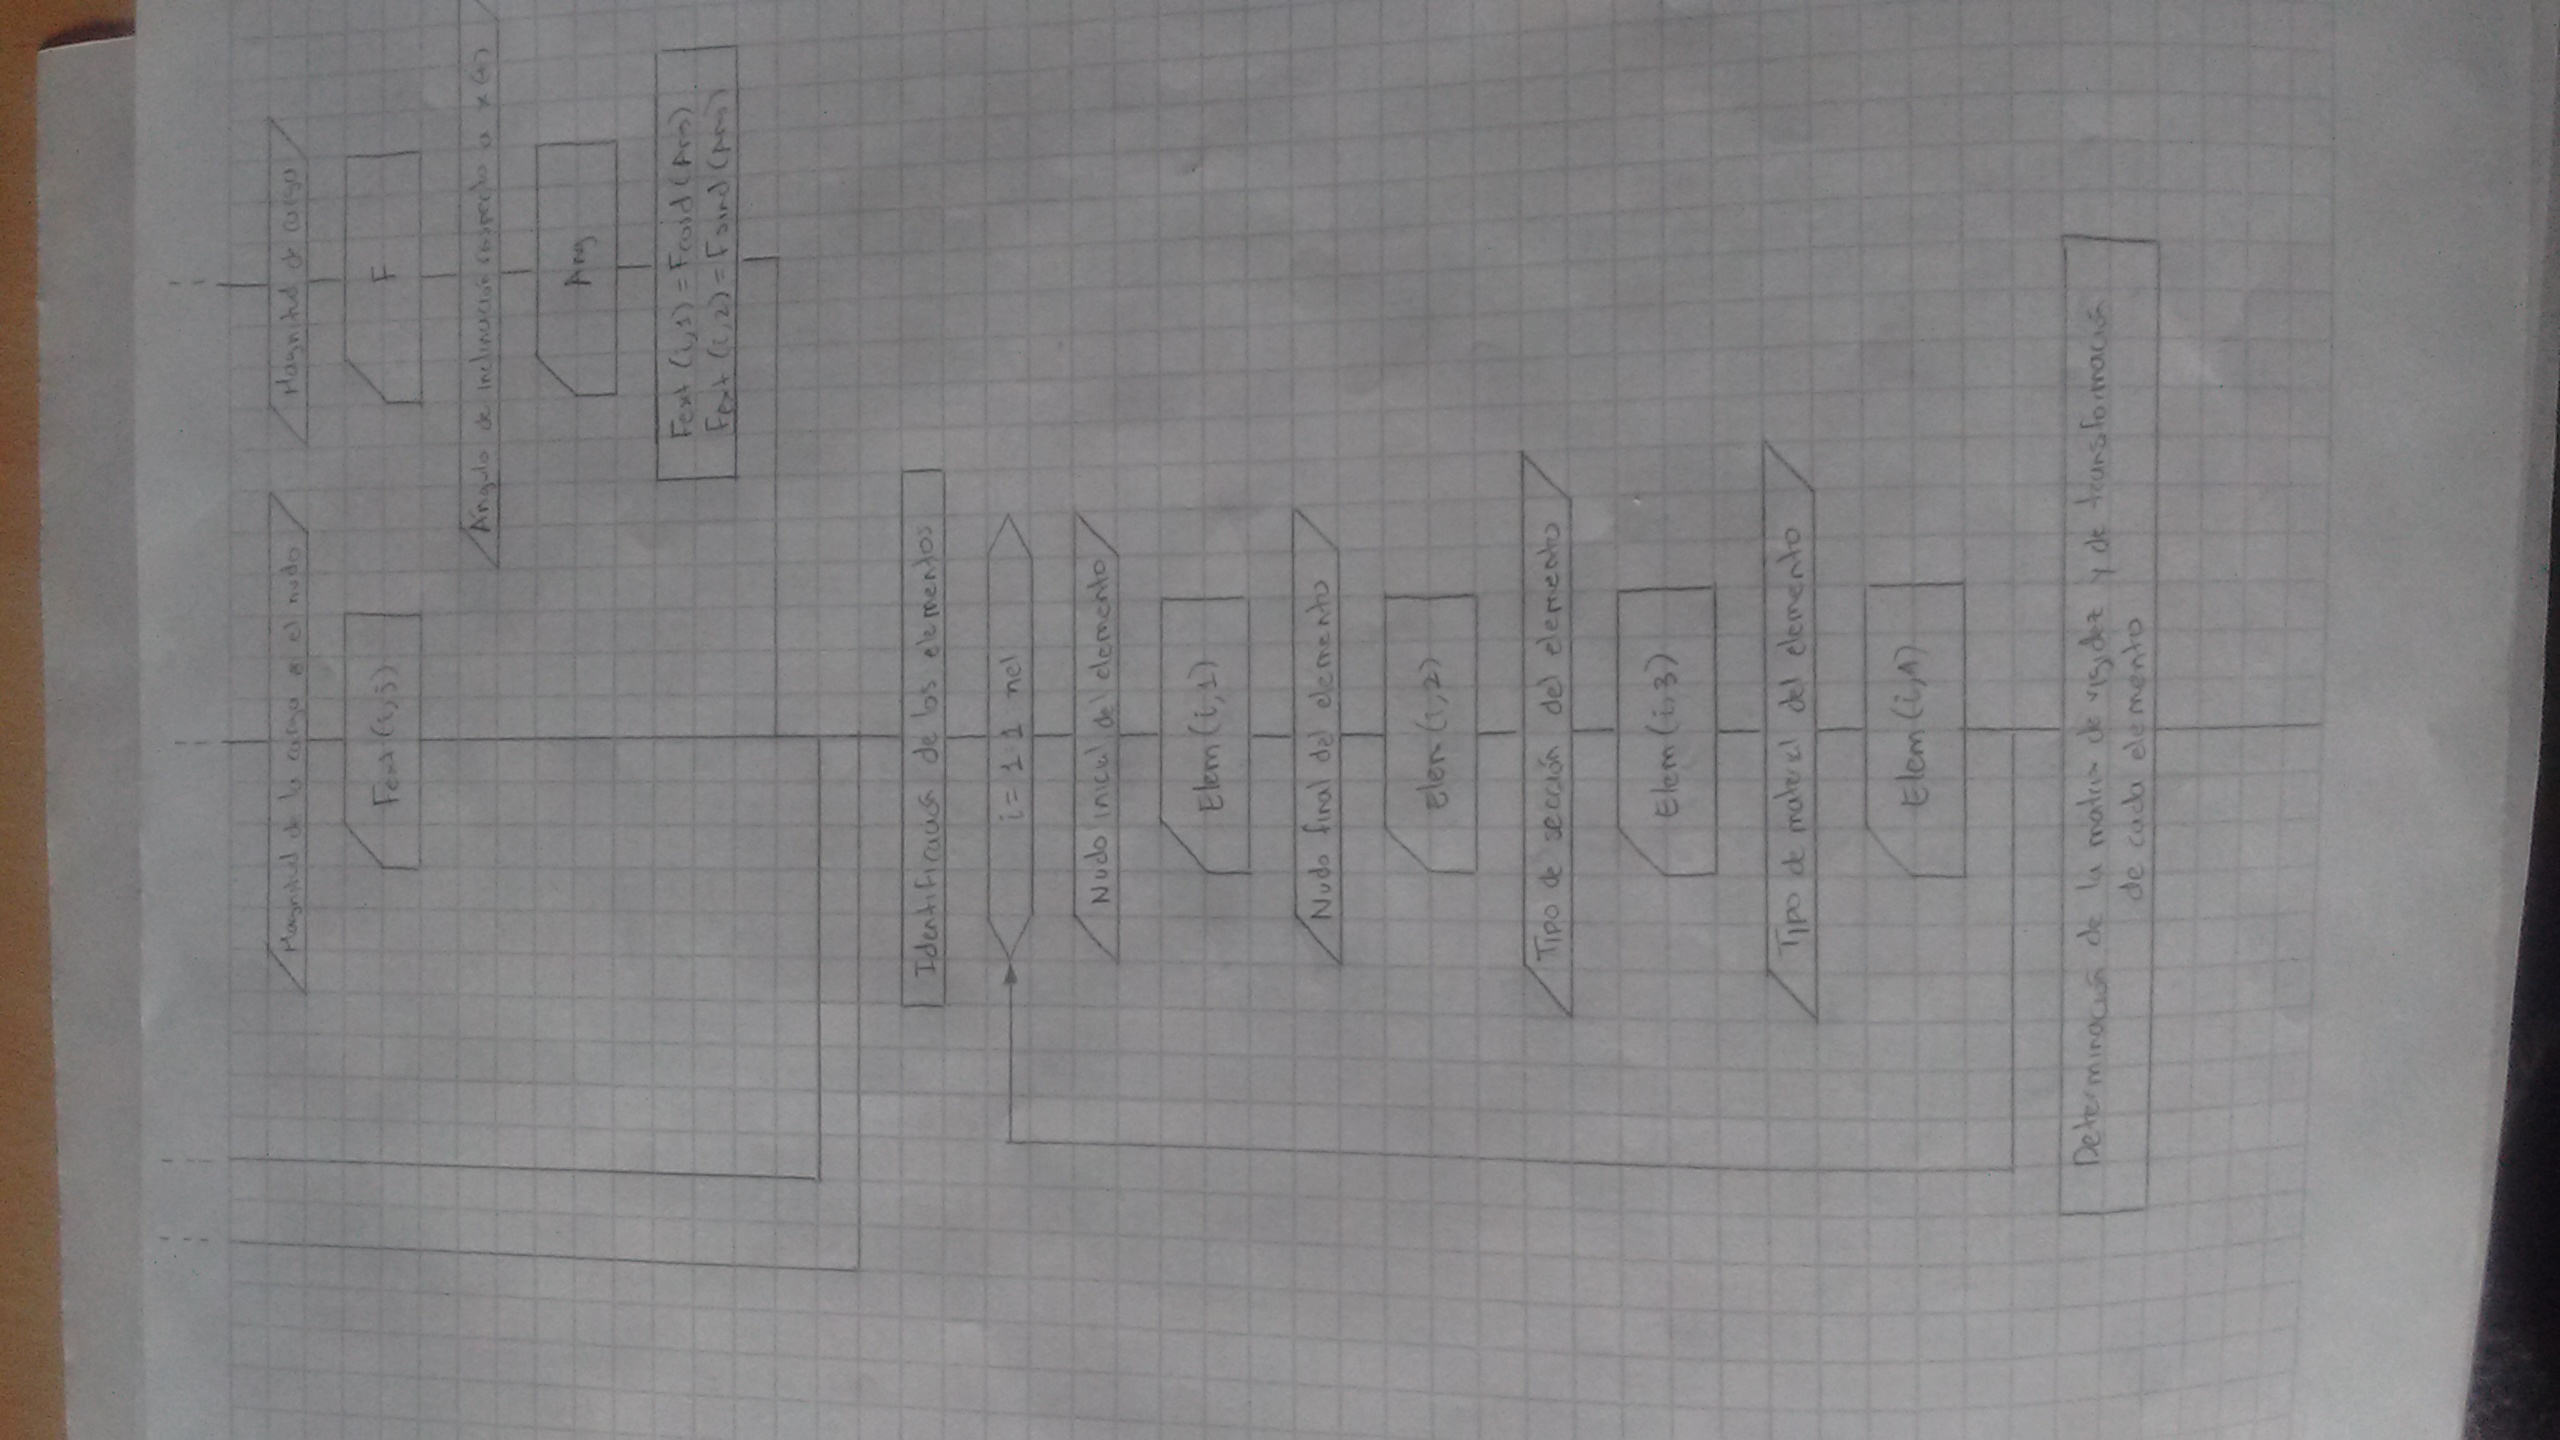 Magnitud de la carga en el nudo
Fext (i,j)
Magnitud de carga
F
Ángulo de inclinación respecto a x(+)
Ang
Fext (i,1) = Fcosd (Ang)
Fext (i,2) = Fsind (Ang)
Identificación de los elementos
i = 1 1 nel
Nudo inicial del elemento
Elem (i,1)
Nudo final del elemento
Elem (i,2)
Tipo de sección del elemento
Elem (i,3)
Tipo de material del elemento
Elem (i,4)
Determinación de la matriz de rigidez y de transformación
de cada elemento